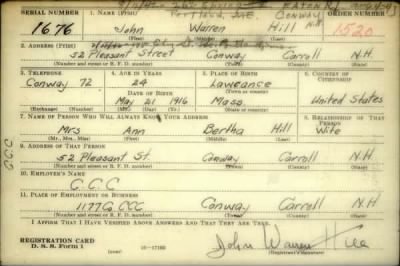 SERIAL NUMBER
1. NAME (Print)
ORDER NUMBER
1676 John Warren Hill 1520
Portland, Me. Conway N.H.
(First) (Middle) (Last)
2. ADDRESS (Print)
52 Pleasant Street Conway Carroll N.H.
(Number and street or R. F. D. number) (Town) (County) (State)
3. TELEPHONE
4. AGE IN YEARS
5. PLACE OF BIRTH
6. COUNTRY OF CITIZENSHIP
Conway 72 24 Lawrance
DATE OF BIRTH
(Town or county)
May 21 1916 Mass United States
(Exchange) (Number) (Mo.) (Day) (Yr.) (State or country)
7. NAME OF PERSON WHO WILL ALWAYS KNOW YOUR ADDRESS
8. RELATIONSHIP OF THAT PERSON
Mrs Ann Bertha Hill Wife
(Mr., Mrs., Miss) (First) (Middle) (Last)
C.C.C
9. ADDRESS OF THAT PERSON
52 Pleasant St. Conway Carroll N.H
(Number and street or R. F. D. number) (Town) (County) (State)
10. EMPLOYER'S NAME
C.C.C
11. PLACE OF EMPLOYMENT OR BUSINESS
1177 Co CCC Conway Carroll N.H
(Number and street or R. F. D. number) (Town) (County) (State)
I AFFIRM THAT I HAVE VERIFIED ABOVE ANSWERS AND THAT THEY ARE TRUE.
REGISTRATION CARD
D. S. S. Form 1
16—17105
John Warren Hill
(Registrant's signature)